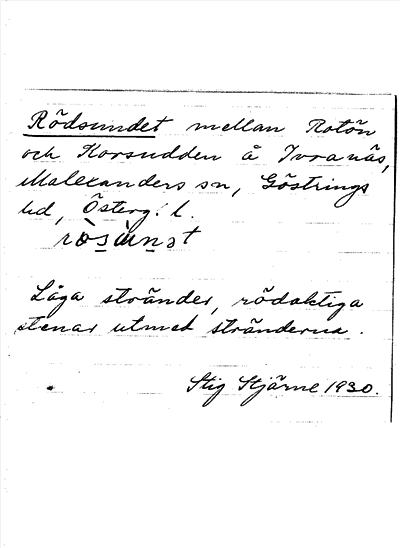 Rödsundet mellan Rotön
och Korsudden å Ivranäs,
Malexanders sn, Göstrings
hd, Österg. l.
rösùnət
Låga stränder, rödaktiga
stenar utmed stränderna.
Stig Stjärne 1930.